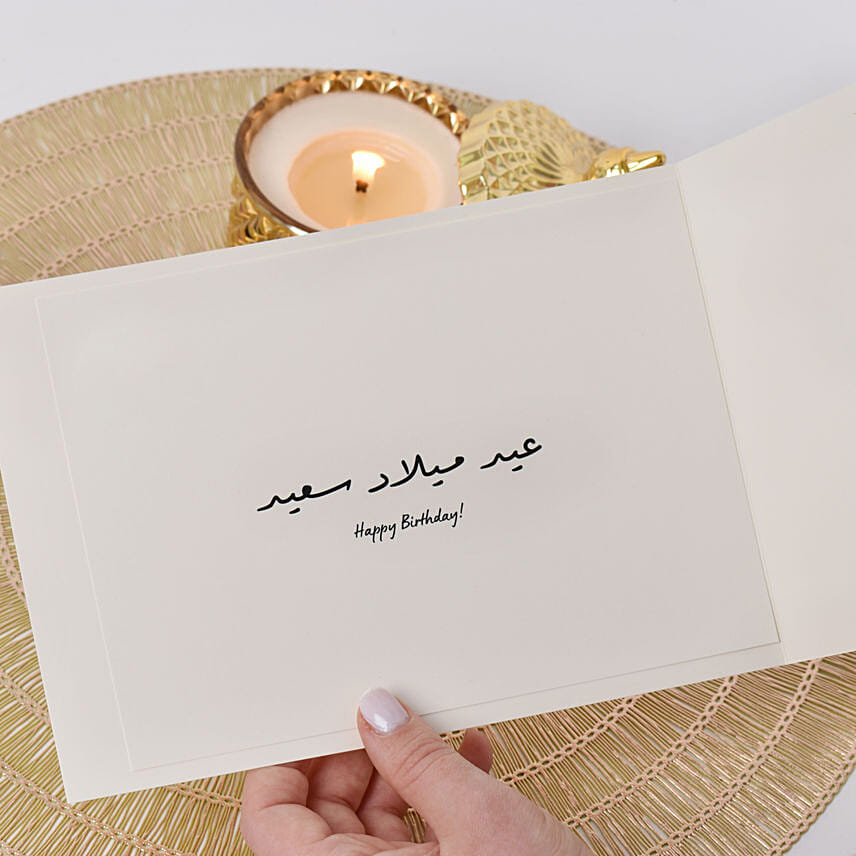 عيد ميلاد سعيد
Happy Birthday!